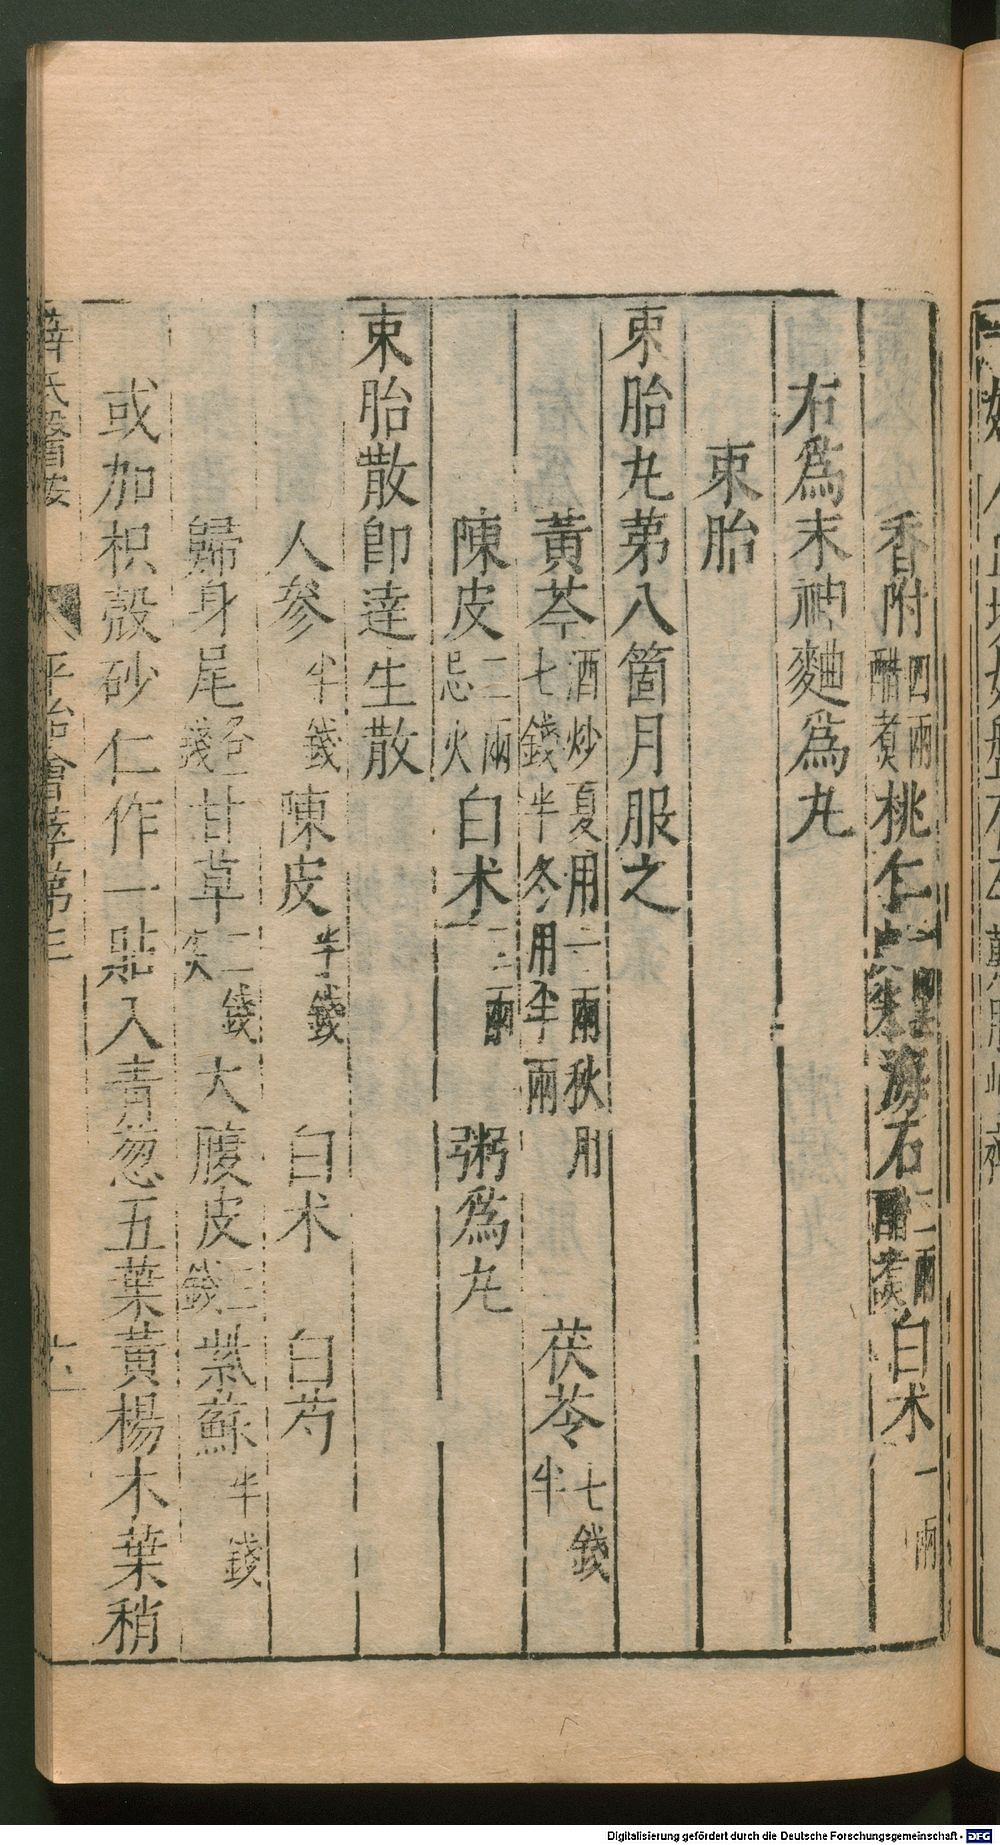 香附四兩醋煮桃仁一兩去皮尖海石二兩醋煮白朮一兩
右爲末神麯爲丸
束胎
束胎丸第八箇月服之
黃芩酒炒夏用一兩秋用七錢半冬用半兩茯苓七錢半
陳皮二兩忌火白朮二兩粥爲丸
束胎散即達生散
人參半錢陳皮半錢白朮白芍
歸身尾各一錢甘草二錢炙大腹皮三錢紫蘇半錢
或加枳殼砂仁作一貼入青葱五葉黃楊木葉稍
薛氏醫按 平治會萃第三
Digitalisierung gefördert durch die Deutsche Forschungsgemeinschaft - DFG